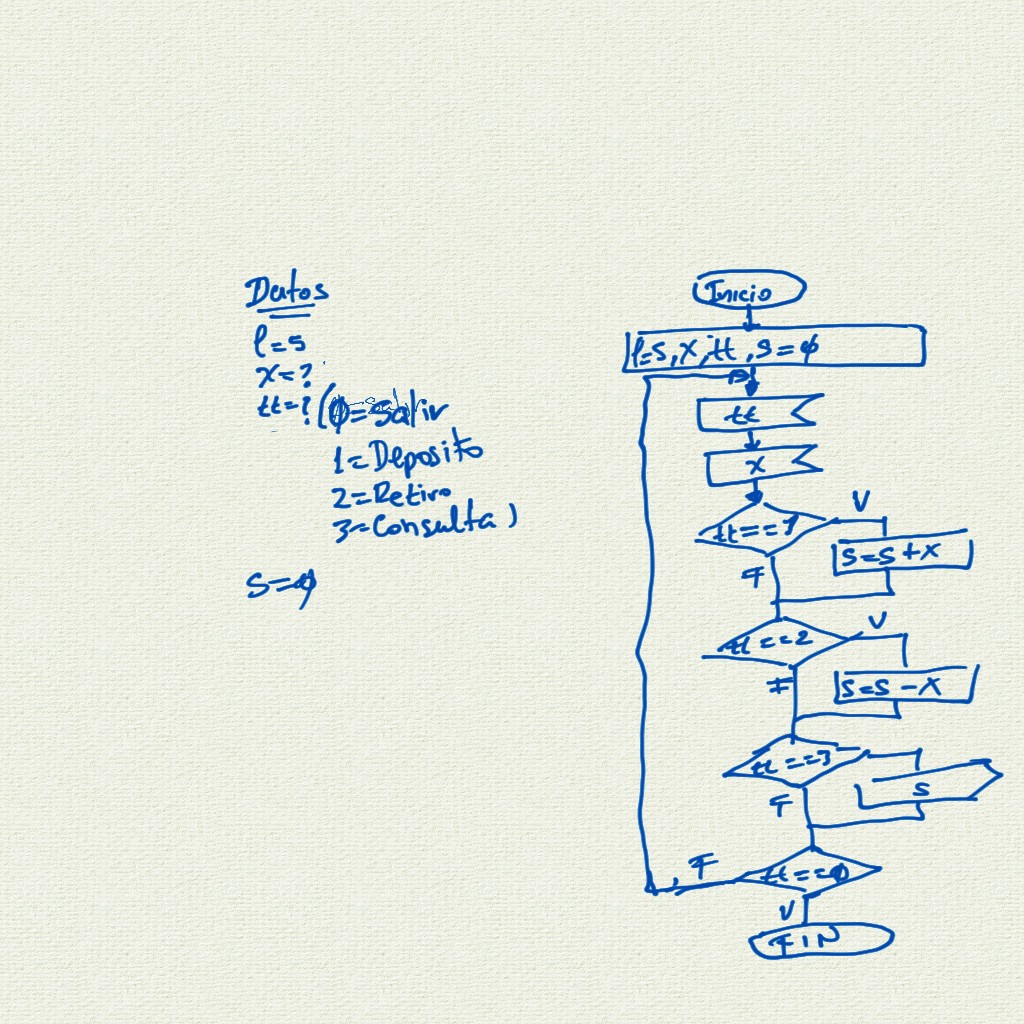 Datos
l=5
x=?
tt=? (φ=Salir
1=Deposito
2=Retiro
3=Consulta)
S=φ
Inicio
l=5, X, tt, S=φ
tt
X
tt==1
V
S=S+X
F
tt==2
V
S=S-X
F
tt==3
S
F
tt==φ
F
V
FIN